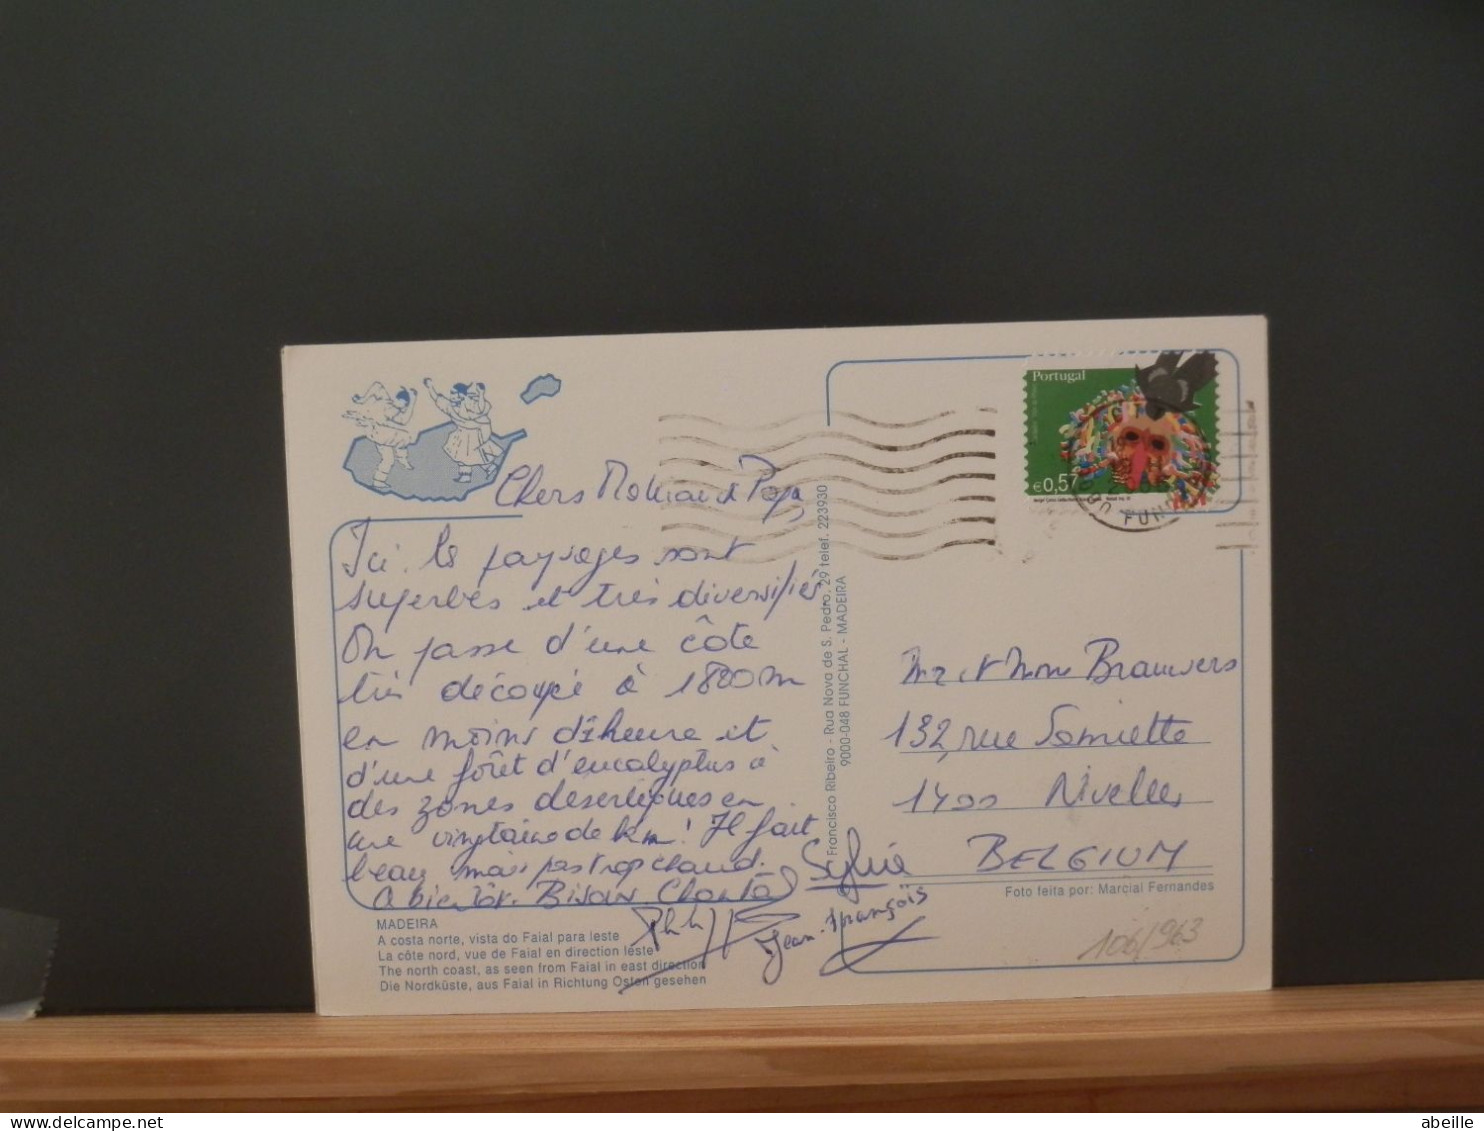 Chers Maman et Papa,
Ici les paysages sont
superbes et très diversifiés
On passe d'une côte
très découpée à 1800m
en moins d'1heure et
d'une forêt d'eucalyptus à
des zones desertiques en
une vingtaine de km! Il fait
beau mais pas trop chaud.
A bientôt. Bisous Chantal
Sylvie
Phil
Jean-François
MADEIRA
A costa norte, vista do Faial para leste
La côte nord, vue de Faial en direction leste
The north coast, as seen from Faial in east direction
Die Nordküste, aus Faial in Richtung Osten gesehen
Francisco Ribeiro - Rua Nova de S. Pedro, 29 telef. 223930
9000-048 FUNCHAL - MADEIRA
Portugal
€0,57
FUNC
Mr et Mme Brauwers
132, rue Samiette
1400 Nivelles
BELGIUM
Foto feita por: Marcial Fernandes
106/963
abeille